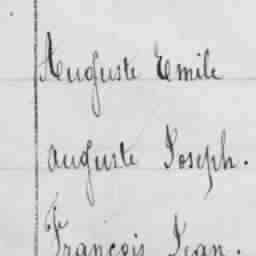 Auguste Emile
auguste Joseph.
François Jean.